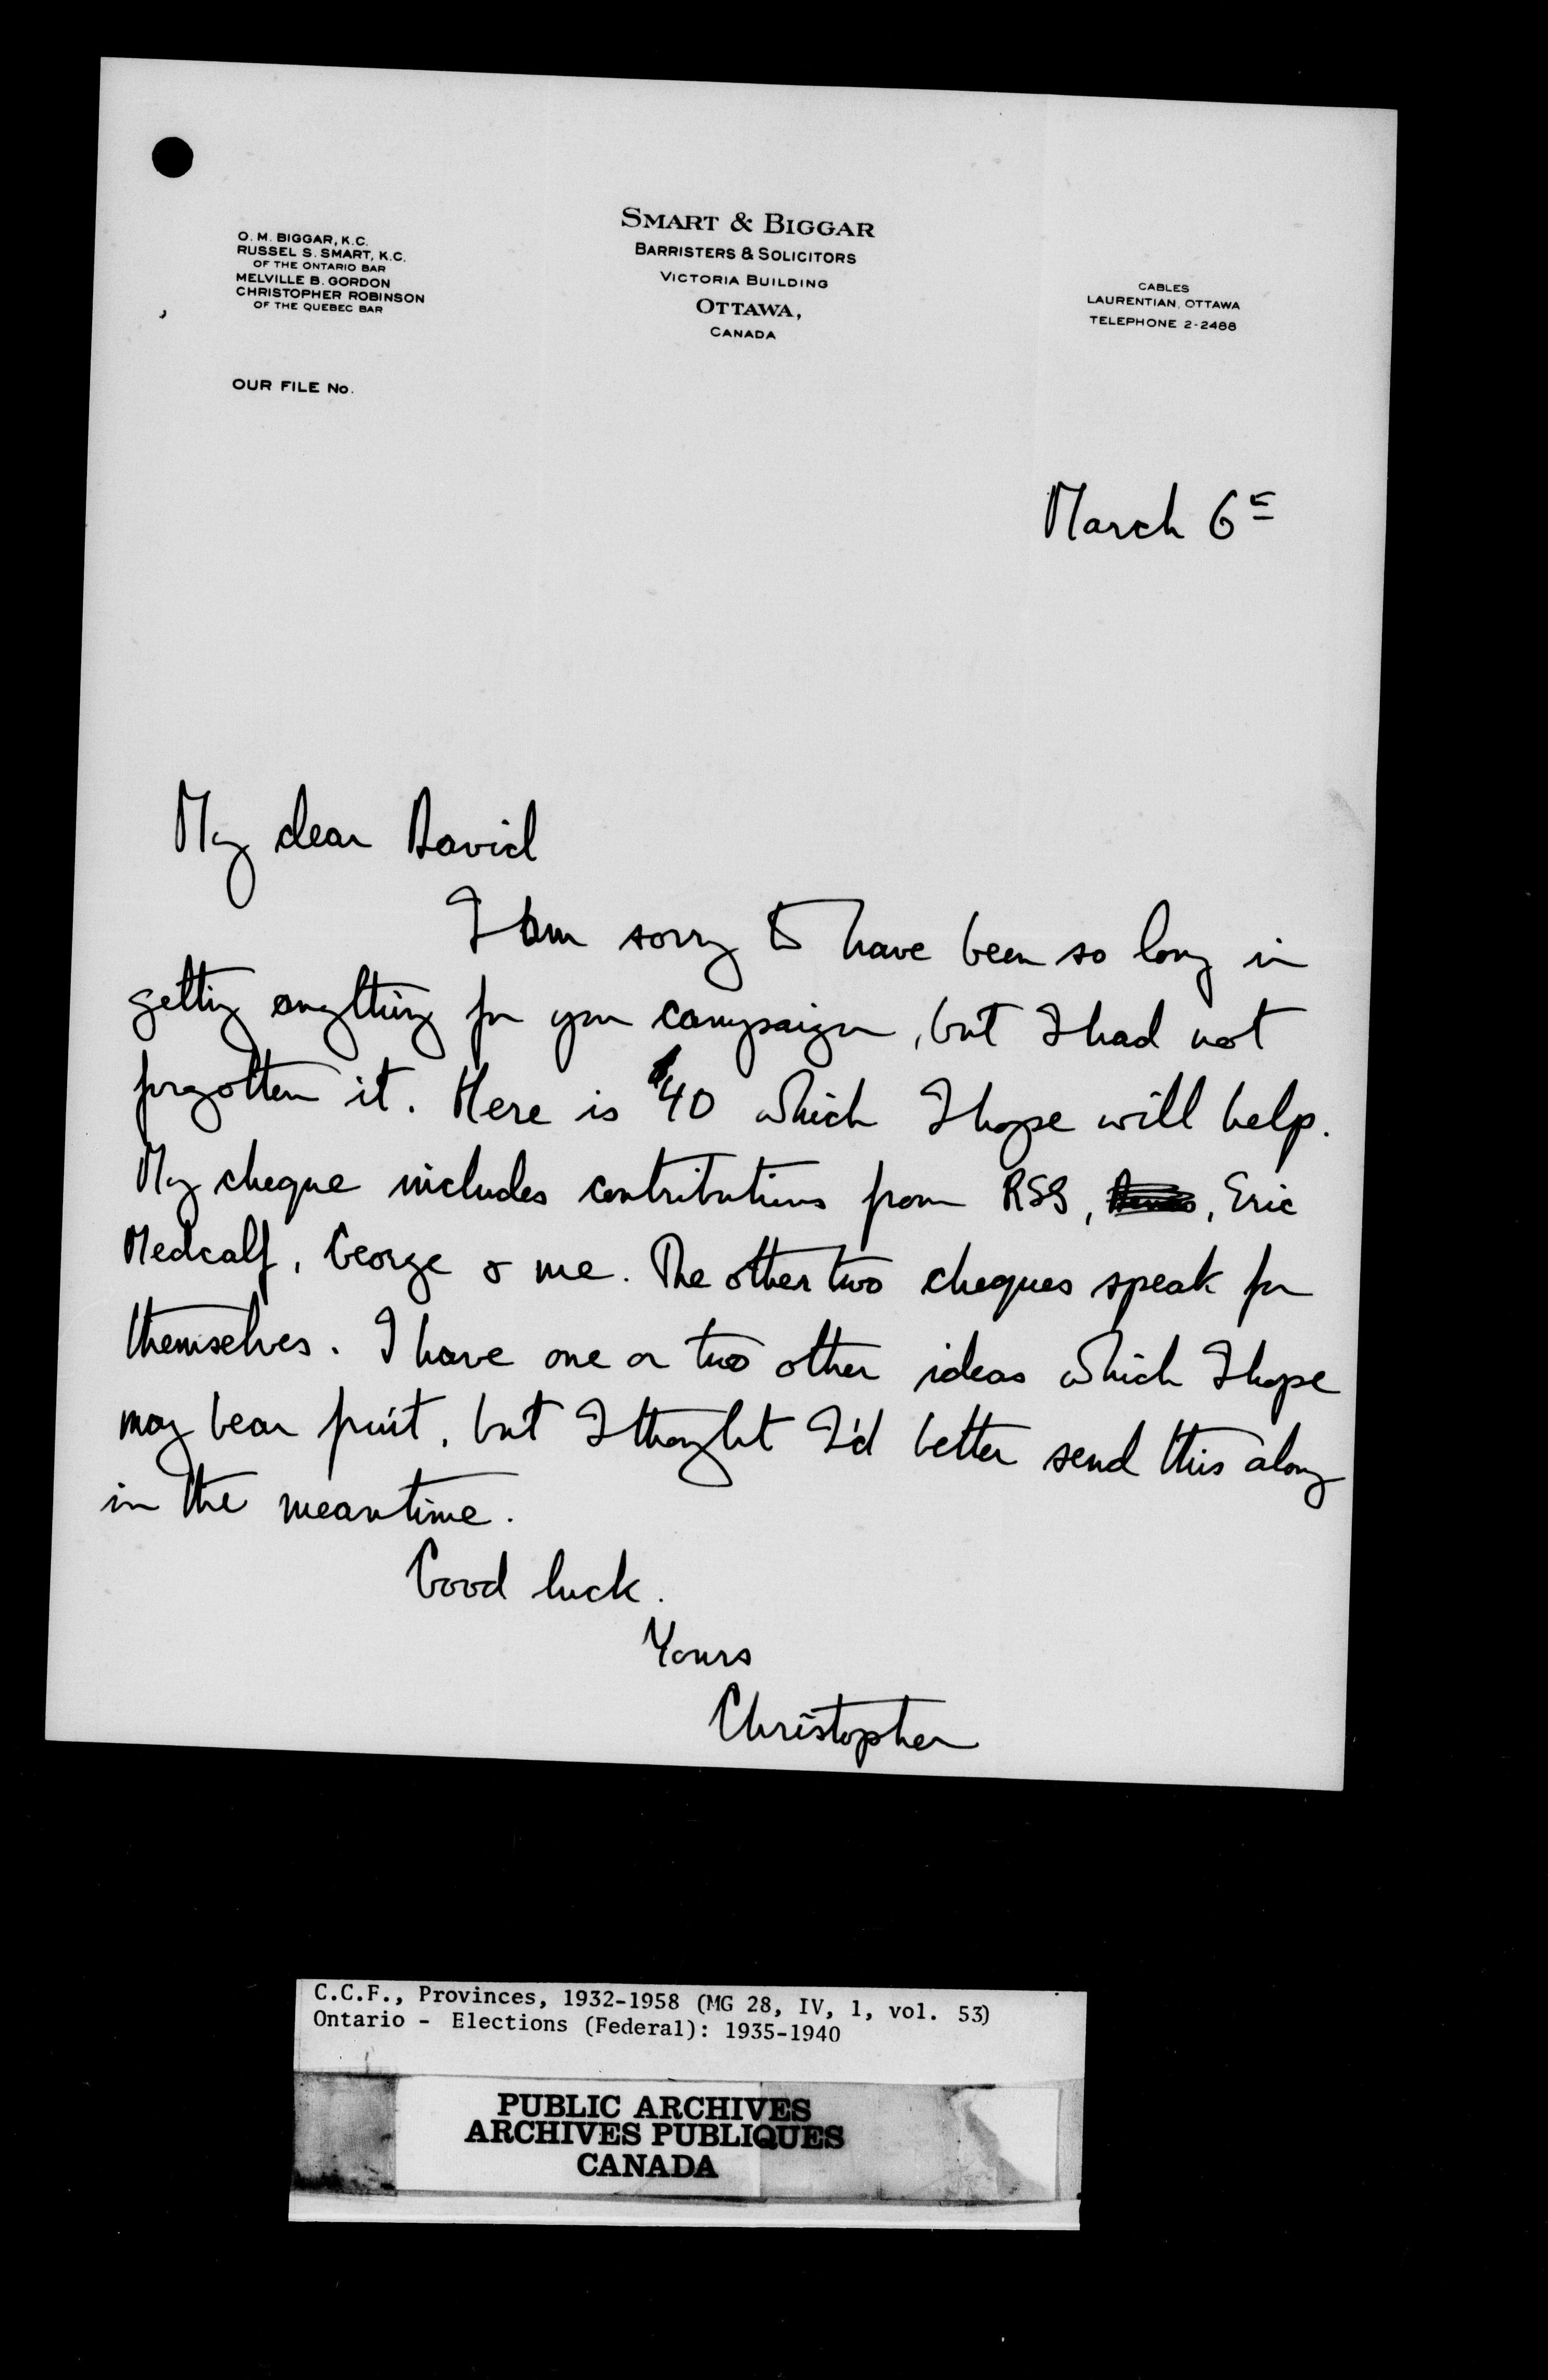 O. M. BIGGAR, K.C.
RUSSEL S. SMART, K.C.
OF THE ONTARIO BAR
MELVILLE B. GORDON
CHRISTOPHER ROBINSON
OF THE QUEBEC BAR
OUR FILE No.
SMART & BIGGAR
BARRISTERS & SOLICITORS
VICTORIA BUILDING
OTTAWA,
CANADA
CABLES
LAURENTIAN, OTTAWA
TELEPHONE 2-2488
March 6
My dear David
I am sorry to have been so long in
getting anything for your campaign, but I had not
forgotten it. Here is $40 which I hope will help.
My cheque includes contributions from RSS, , Eric
Medcalf, George & me. The other two cheques speak for
themselves. I have one or two other ideas which I hope
may bear fruit, but I thought I'd better send this along
in the meantime.
Good luck.
Yours
Christopher
C.C.F., Provinces, 1932-1958 (MG 28, IV, 1, vol. 53)
Ontario - Elections (Federal): 1935-1940
PUBLIC ARCHIVES
ARCHIVES PUBLIQUES
CANADA